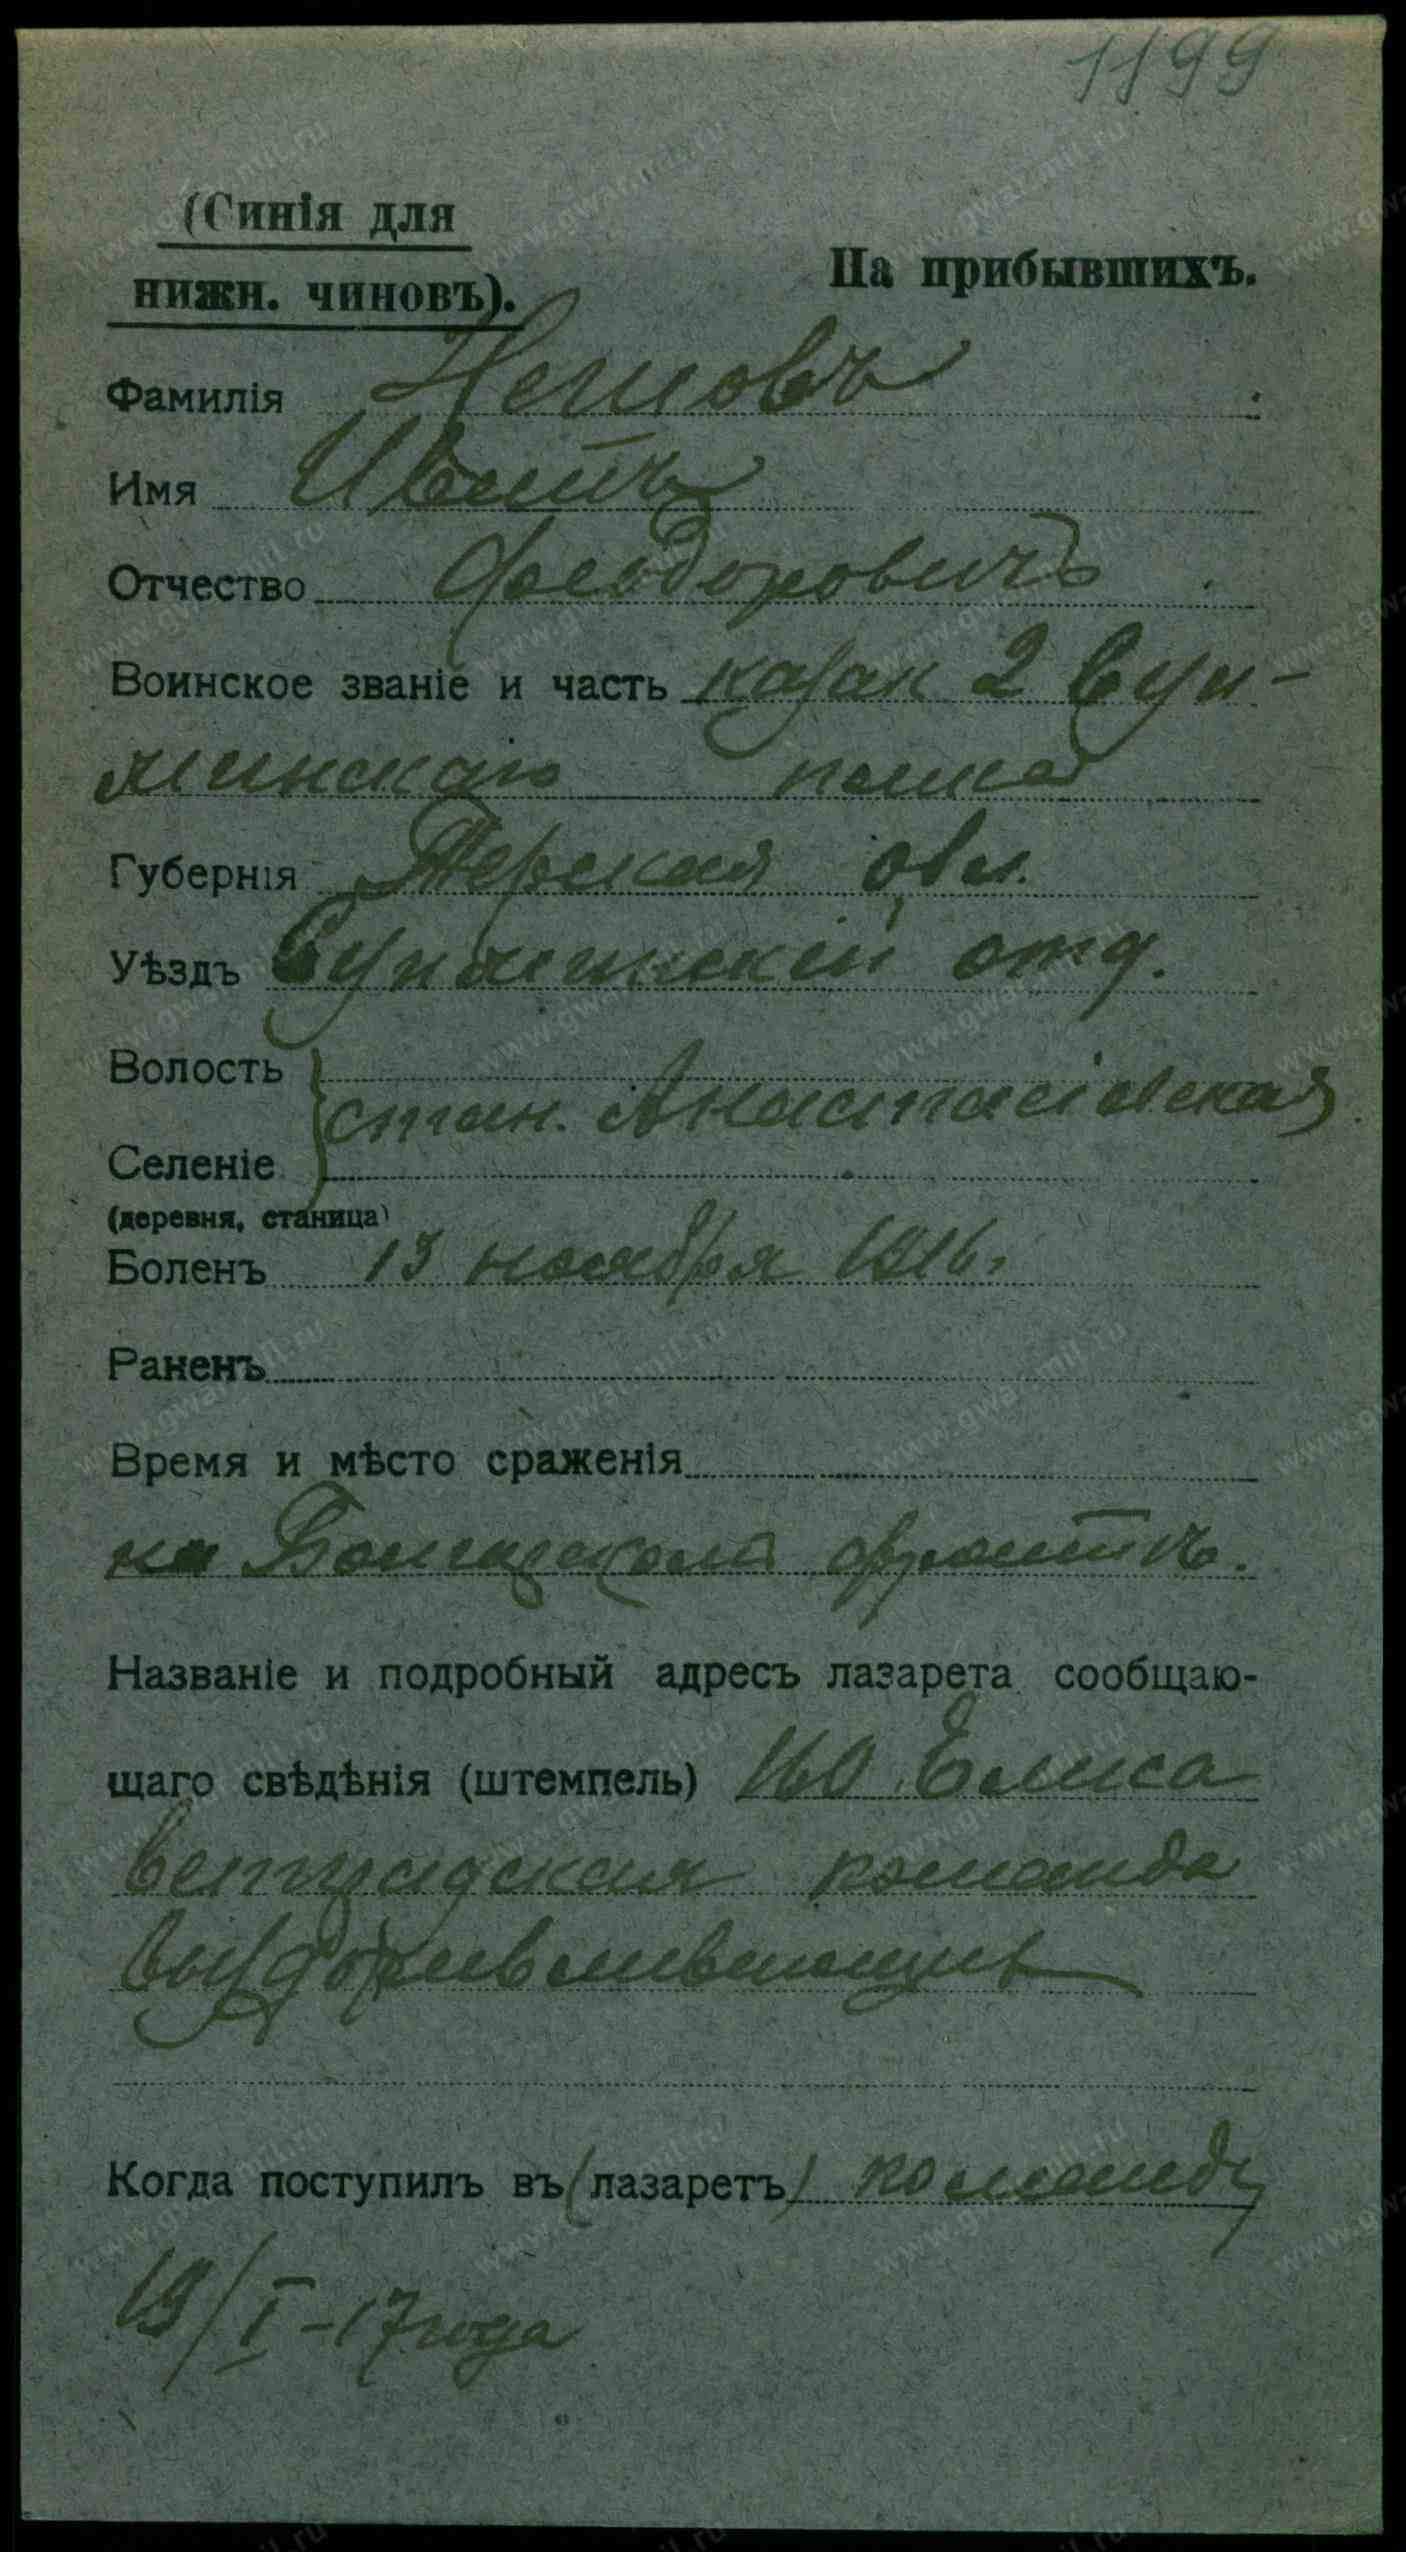 1199
(Синія для
нижн. чиновъ).
На прибывшихъ.
Фамилія Нешовъ
Имя
Отчество Феодоровичъ
Воинское званіе и часть казак 2 Сун-
женскаго полка
Губернія Терская обл.
Уѣздъ Сунженскій отд.
Волость
стан. Анастасіевская
Селеніе
(деревня, станица)
Боленъ 13 ноября 1916 г.
Раненъ
Время и мѣсто сраженія
на фронтѣ.
Названіе и подробный адресъ лазарета сообщаю-
щаго свѣдѣнія (штемпель) 160 Елиса
ветградская команда
выздоравливающих
Когда поступилъ въ (лазаретъ) команду
19/I-17 года